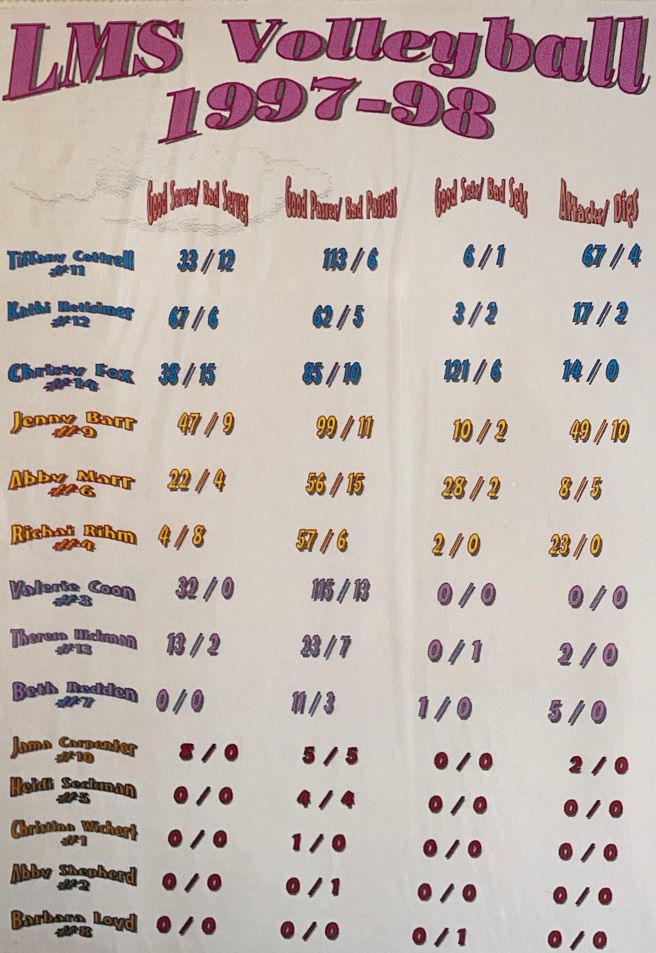 LMS Volleyball
1997-98
Good Serves/ Bad Serves Good Passes/ Bad Passes Good Sets/ Bad Sets Attacks/ Digs
Tiffany Cottrell 33 / 12 113 / 6 6 / 1 67 / 4
#11
Kathi 67 / 6 62 / 5 3 / 2 17 / 2
#12
Christy Fox 38 / 15 85 / 10 121 / 6 14 / 0
#14
Jenny Barr 47 / 9 99 / 11 10 / 2 49 / 10
#9
Abby Marr 22 / 4 56 / 15 28 / 2 8 / 5
#6
Rihm 4 / 8 57 / 6 2 / 0 23 / 0
#4
Valerie Coon 32 / 0 115 / 13 0 / 0 0 / 0
#3
Theresa Hickman 13 / 2 23 / 7 0 / 1 2 / 0
#13
Beth Redden 0 / 0 11 / 3 1 / 0 5 / 0
#7
Jama Carpenter 8 / 0 5 / 5 0 / 0 2 / 0
#10
Heidi Seckman 0 / 0 4 / 4 0 / 0 0 / 0
#5
Christina Wichert 0 / 0 1 / 0 0 / 0 0 / 0
#1
Abby Shepherd 0 / 0 0 / 1 0 / 0 0 / 0
#2
Barbara Loyd 0 / 0 0 / 0 0 / 1 0 / 0
#8